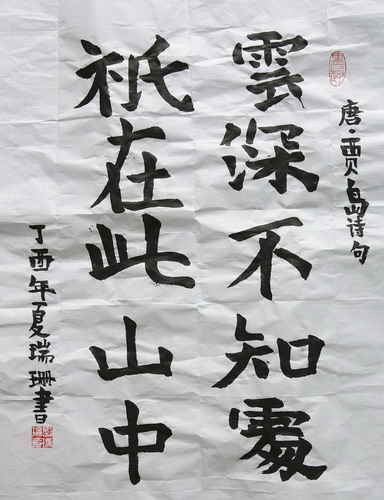 唐·贾島诗句
雲深不知處
祇在此山中
丁酉年夏瑞珊書